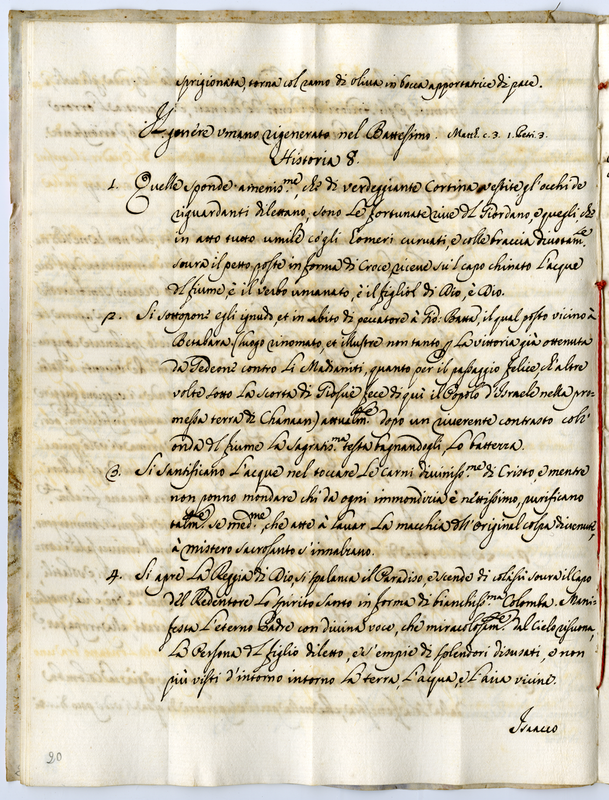 sprigionata, torna col ramo di oliva in bocca apportatrice di pace.
Il genere umano rigenerato nel Battesimo. Matth. c. 3. 1. Petri. 3.
Historia 8.
1. Quelle sponde ameniss.me, che di verdeggiante Cortina vestite gl'occhi de
riguardanti dilettano, sono le fortunate rive del Giordano, e quegli che
in atto tutto umile co'gli Omeri curvati, e colle braccia divotam.te
sovra il petto poste in forma di Croce, riceve su'l capo chinato l'acque
del fiume, è il verbo umanato, è il figliol di Dio, è Dio.
2. Si sottopone egli ignudo, et in abito di peccatore à Gio: Batta, il qual posto vicino à
Betabara (luogo rinomato, et illustre non tanto p la vittoria già ottenuta
da Gedeone contro li Madianiti, quanto per il passaggio felice, ch'altre
volte sotto la scorta di Giosuè fece di quì il Popolo d'Israele nella pro-
messa terra di Chanaan) attualm.te dopo un riverente contrasto coll'
onda del fiume la sagratis.ma testa bagnandogli, lo battezza.
3. Si santificano l'acque nel toccare le carni diviniss.me di Cristo, e mentre
non ponno mondare chi da ogni immondizia è nettissimo, purificano
talm.te se med.me, che atte à lavar la macchia dell'original colpa divenute,
à mistero sacrosanto s'innalzano.
4. Si apre la Reggia di Dio, si spalanca il Paradiso, e scende di colassù sovra il capo
del Redentore lo spirito santo in forma di bianchiss.ma Colomba. Mani-
festa l'eterno Padre con divina voce, che miracolosam.te dal Cielo risuona,
la Persona del figlio diletto, e s'empie di splendori disusati, e non
più visti d'intorno intorno la terra, l'acqua, e l'aria vicine.
Isaaco
20